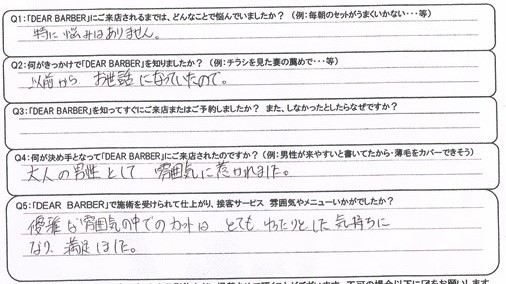 Q1:「DEAR BARBER」にご来店されるまでは、どんなことで悩んでいましたか？（例：毎朝のセットがうまくいかない・・・等）
特に悩みはありません。
Q2:何がきっかけで「DEAR BARBER」を知りましたか？（例：チラシを見た妻の薦めで・・・等）
以前から お世話になっていたので。
Q3:「DEAR BARBER」を知ってすぐにご来店またはご予約しましたか？ また、しなかったとしたらなぜですか？
Q4:何が決め手となって「DEAR BARBER」にご来店されたのですか？（例：男性が来やすいと書いてたから・薄毛をカバーできそう）
大人の男性として 雰囲気に惹かれました。
Q5:「DEAR BARBER」で施術を受けられて仕上がり、接客サービス 雰囲気やメニューいかがでしたか？
優雅な雰囲気の中でのカットは とても ゆったりとした 気持ちに
なり、満足しました。